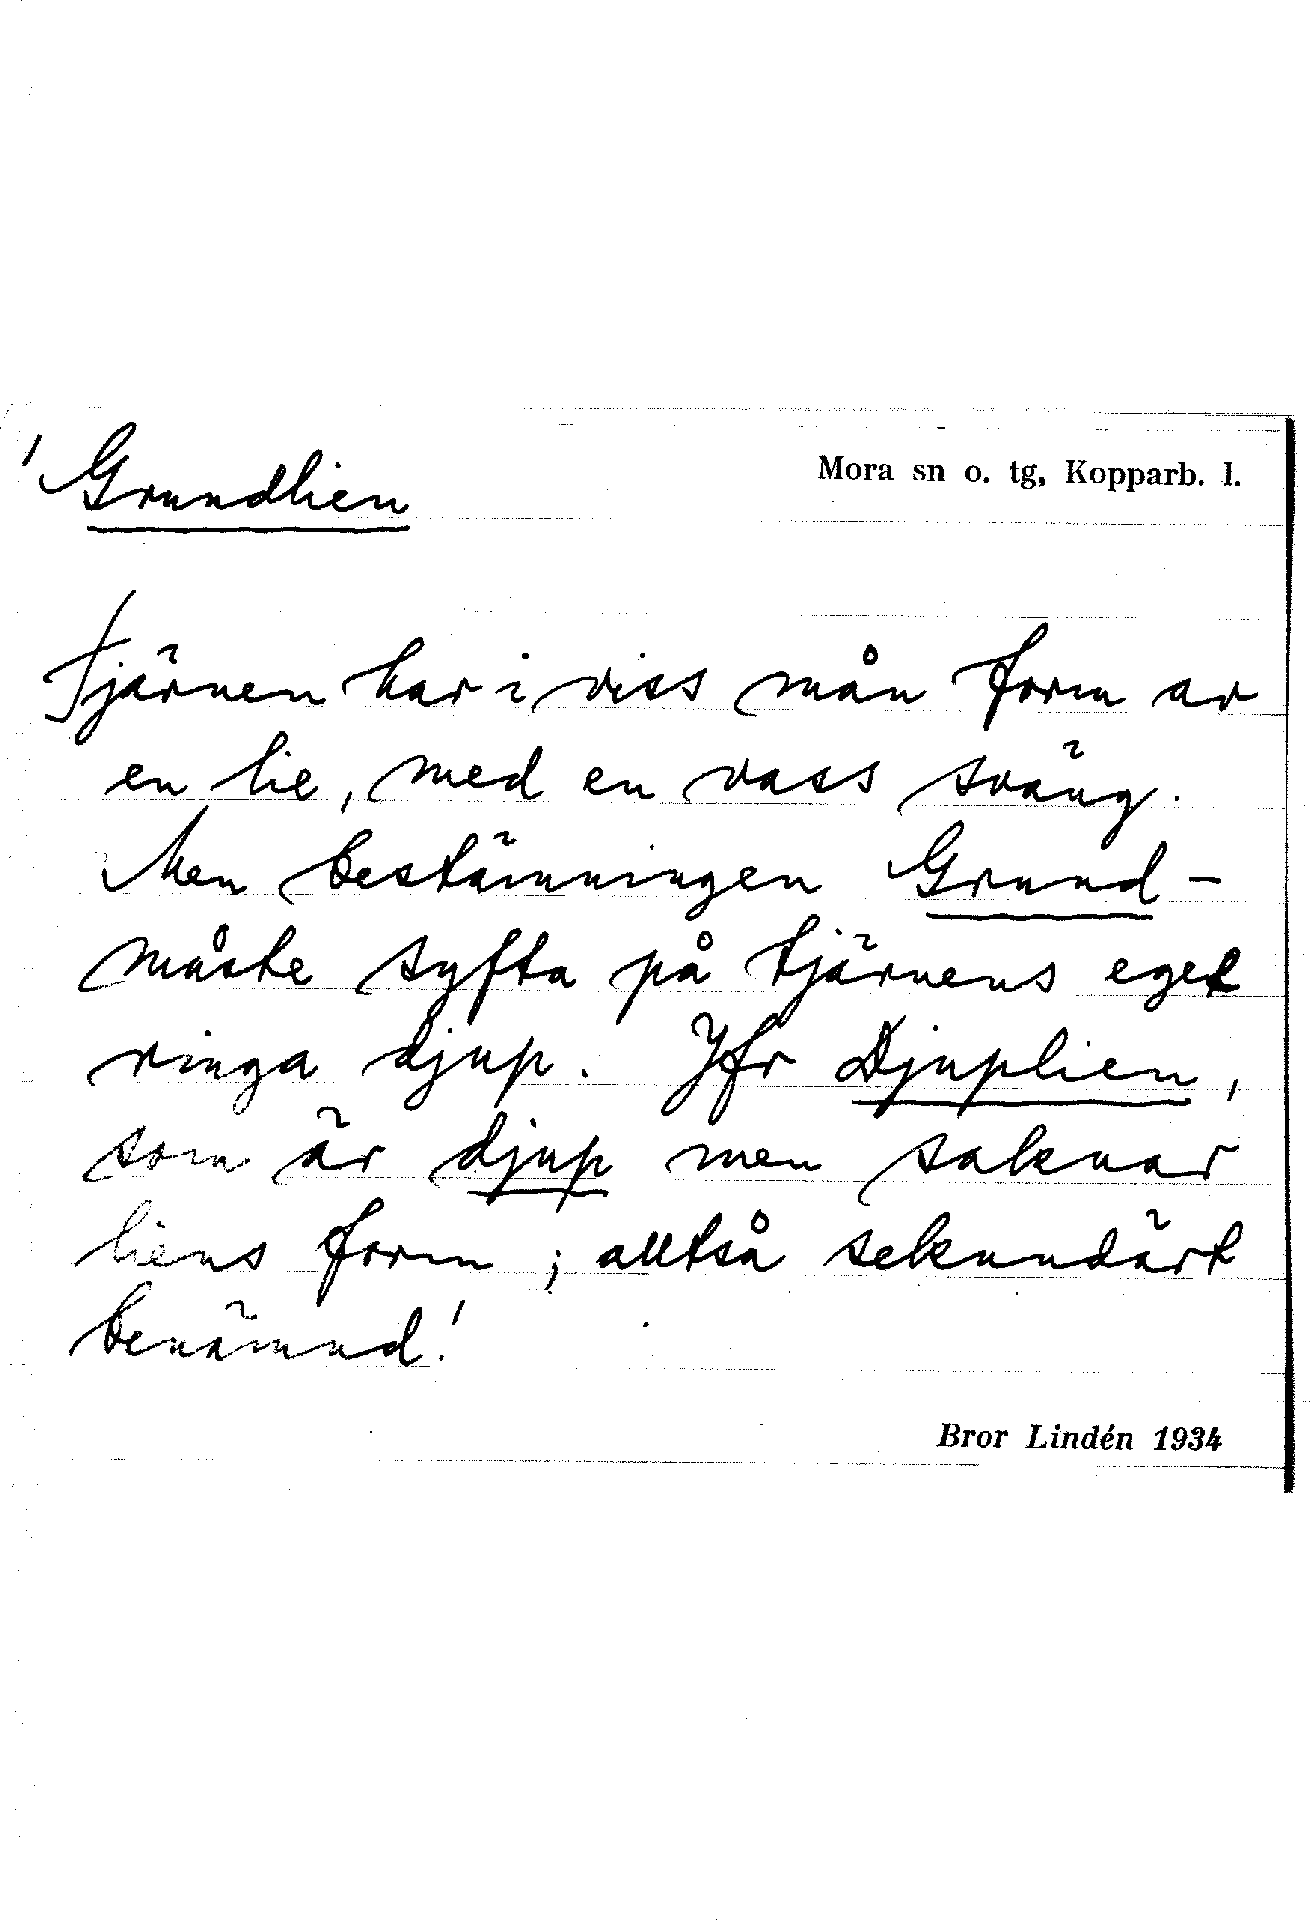 Grundlien
Mora sn o. tg, Kopparb. l.
Tjärnen har i viss mån form av
en lie, med en vass sväng.
Men bestämningen Grund-
måste syfta på tjärnens eget
ringa djup. Jfr Djuplien,
som är djup men saknar
liens form; alltså sekundärt
benämnd!
Bror Lindén 1934